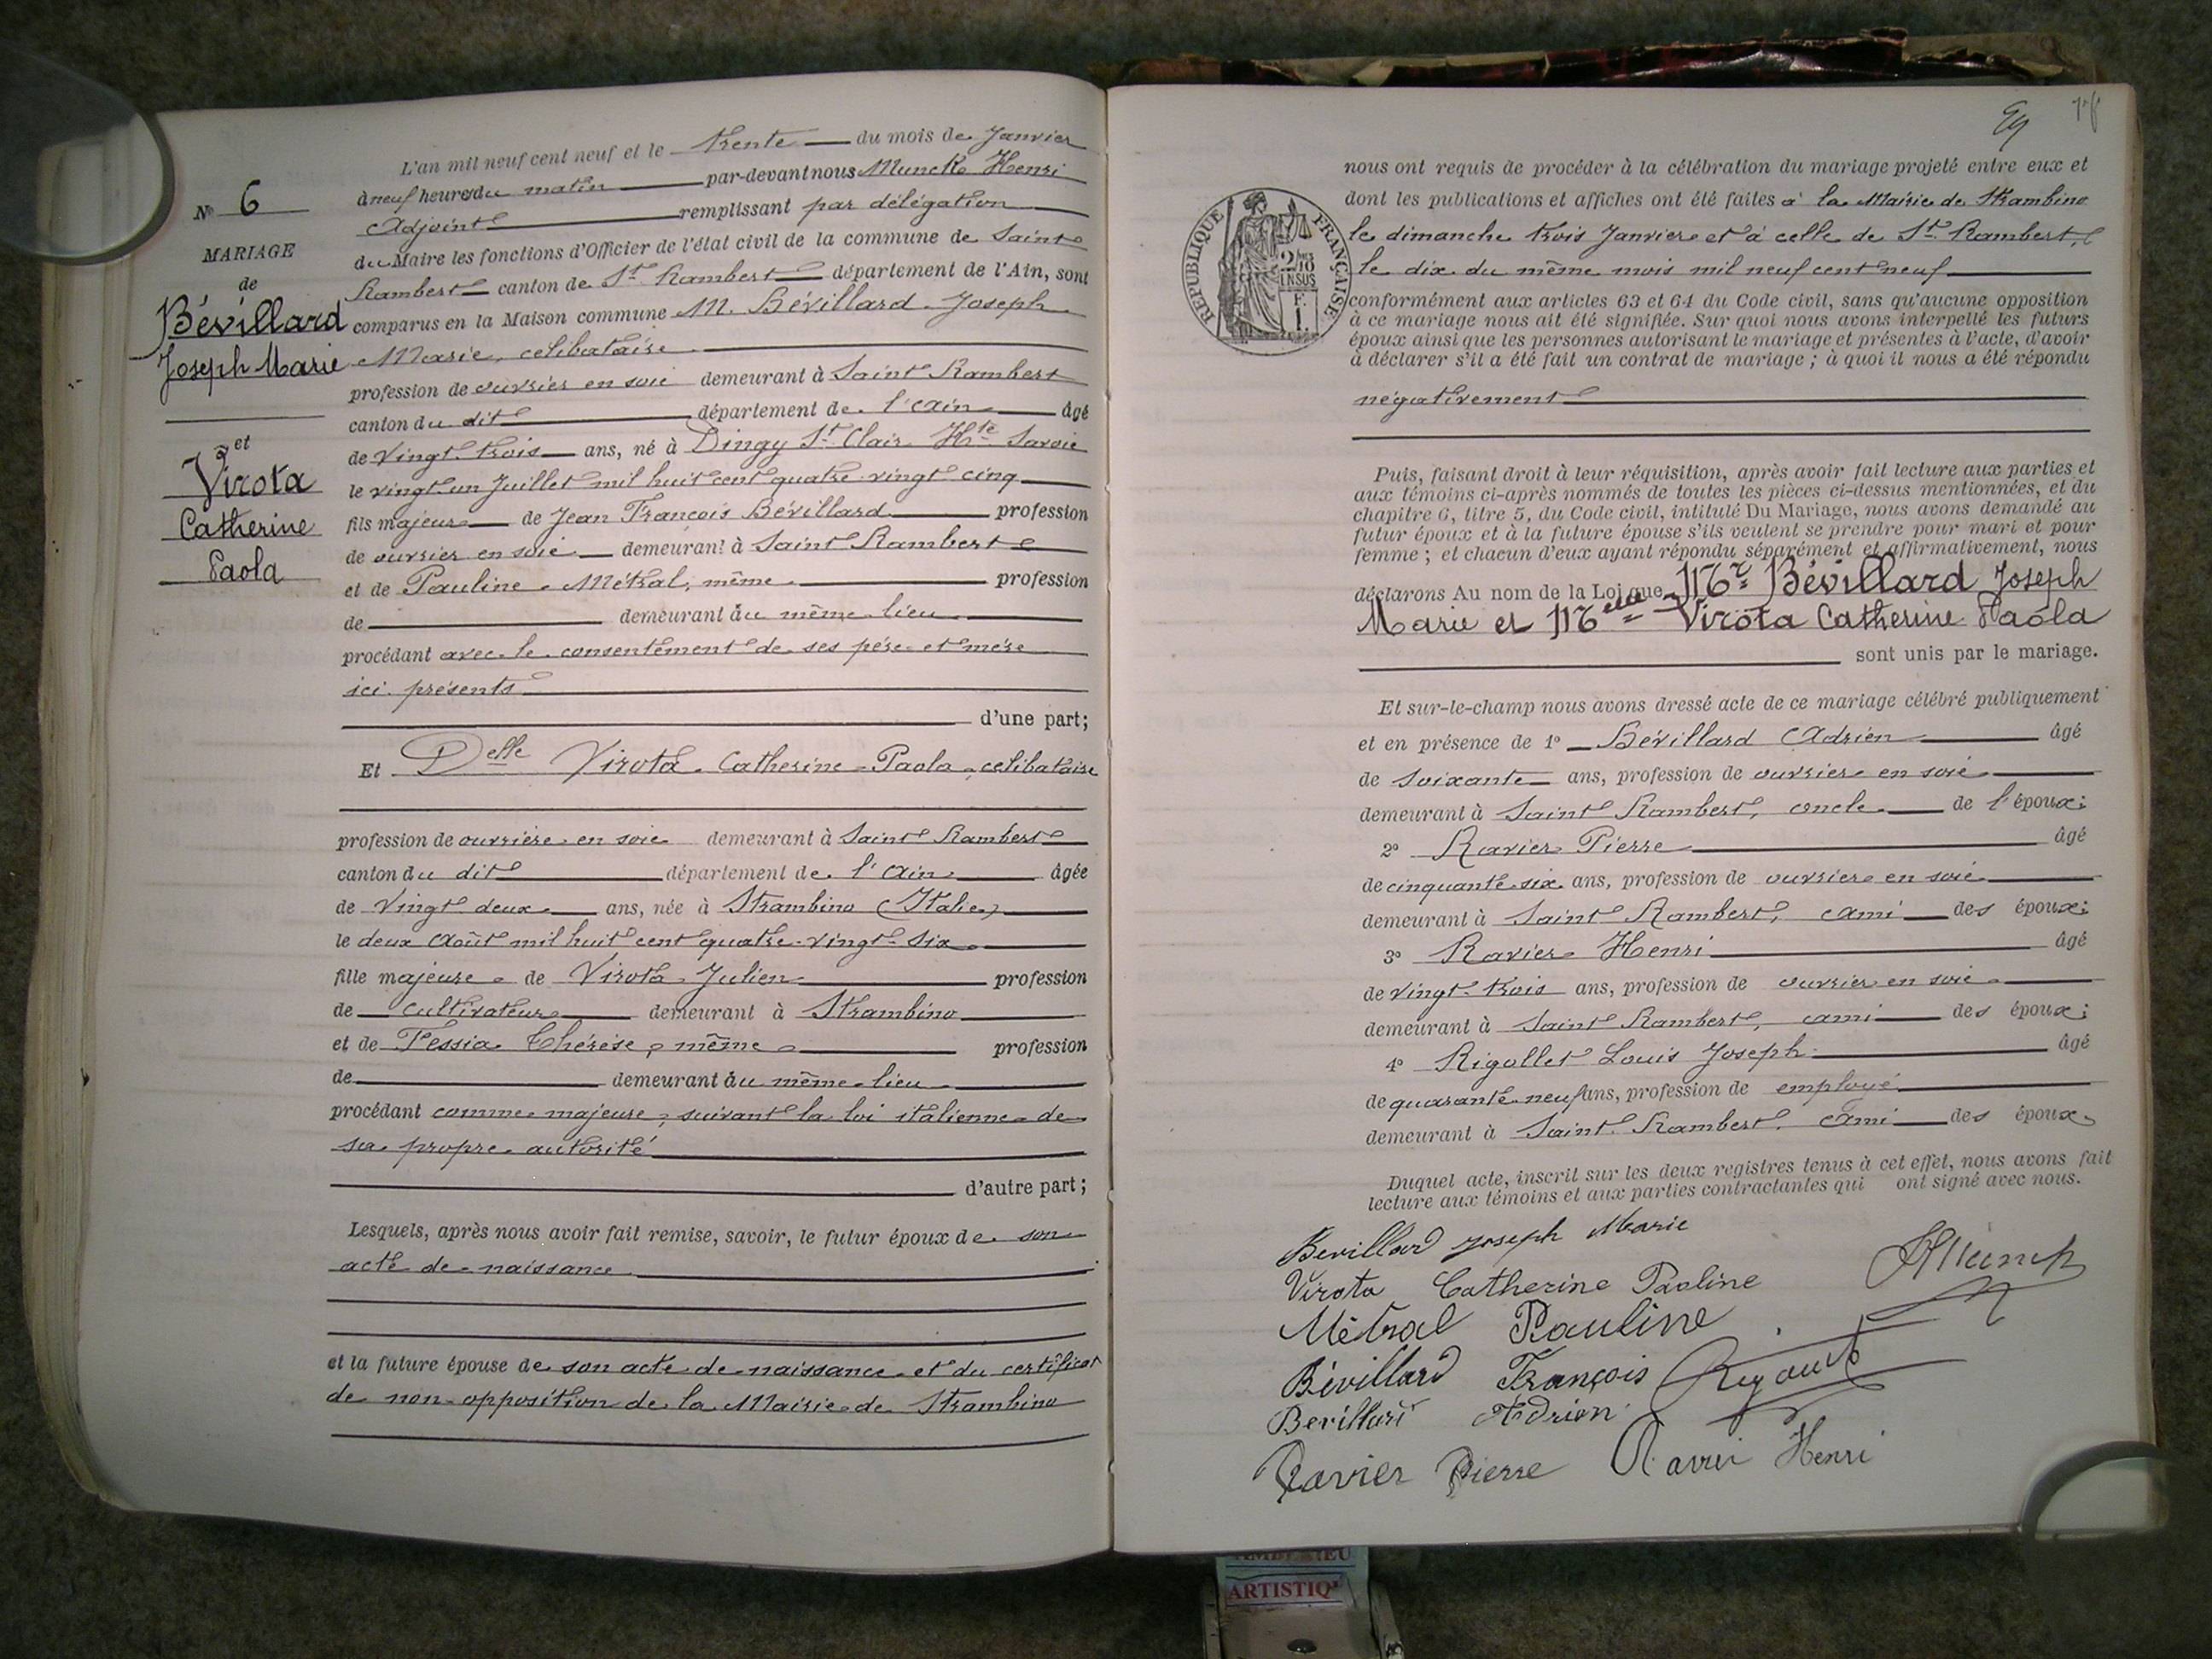 N° 6
MARIAGE
de
Bévillard
Joseph Marie
et
Virota
Catherine
Paola
L'an mil neuf cent neuf et le trente du mois de Janvier
à neuf heures du matin par-devant nous Munck Henri
Adjoint remplissant par délégation
du Maire les fonctions d'Officier de l'état civil de la commune de Saint
Rambert canton de St Rambert département de l'Ain, sont
comparus en la Maison commune M. Bévillard Joseph
Marie, celibataire
profession de ouvrier en soie demeurant à Saint Rambert
canton du dit département de l'Ain âgé
de Vingt trois ans, né à Dingy St Clair Hte Savoie
le vingt un Juillet mil huit cent quatre vingt cinq
fils majeur de Jean François Bévillard profession
de ouvrier en soie demeurant à Saint Rambert
et de Pauline Métral, même profession
de demeurant au même lieu
procédant avec le consentement de ses père et mère
ici présents
d'une part;
Et Delle Virota Catherine Paola, celibataire
profession de ouvrière en soie demeurant à Saint Rambert
canton du dit département de l'Ain âgée
de Vingt deux ans, née à Strambino (Italie)
le deux Août mil huit cent quatre-vingt-six
fille majeure de Virota Julien profession
de cultivateur demeurant à Strambino
et de Tessia Thérèse, même profession
de demeurant au même lieu
procédant comme majeure, suivant la loi italienne de
sa propre autorité
d'autre part;
Lesquels, après nous avoir fait remise, savoir, le futur époux de son
acte de naissance
et la future épouse de son acte de naissance et du certificat
de non opposition de la Mairie de Strambino
RÉPUBLIQUE FRANÇAISE
2/10
EN SUS
F.
1.
nous ont requis de procéder à la célébration du mariage projeté entre eux et
dont les publications et affiches ont été faites à la Mairie de Strambino
le dimanche trois Janvier et à celle de St. Rambert,
le dix du même mois mil neuf cent neuf
conformément aux articles 63 et 64 du Code civil, sans qu'aucune opposition
à ce mariage nous ait été signifiée. Sur quoi nous avons interpellé les futurs
époux ainsi que les personnes autorisant le mariage et présentes à l'acte, d'avoir
à déclarer s'il a été fait un contrat de mariage ; à quoi il nous a été répondu
négativement
Puis, faisant droit à leur réquisition, après avoir fait lecture aux parties et
aux témoins ci-après nommés de toutes les pièces ci-dessus mentionnées, et du
chapitre 6, titre 5, du Code civil, intitulé Du Mariage, nous avons demandé au
futur époux et à la future épouse s'ils veulent se prendre pour mari et pour
femme ; et chacun d'eux ayant répondu séparément et affirmativement, nous
déclarons Au nom de la Loi que Mr Bévillard Joseph
Marie et Melle Virota Catherine Paola
sont unis par le mariage.
Et sur-le-champ nous avons dressé acte de ce mariage célébré publiquement
et en présence de 1° Bévillard Adrien âgé
de soixante ans, profession de ouvrier en soie
demeurant à Saint Rambert, oncle de l'époux;
2° Ravier Pierre âgé
de cinquante six ans, profession de ouvrier en soie
demeurant à Saint Rambert, ami des époux;
3° Ravier Henri âgé
de vingt trois ans, profession de ouvrier en soie
demeurant à Saint Rambert, ami des époux;
4° Rigollet Louis Joseph âgé
de quarante neuf ans, profession de employé
demeurant à Saint Rambert, ami des époux
Duquel acte, inscrit sur les deux registres tenus à cet effet, nous avons fait
lecture aux témoins et aux parties contractantes qui ont signé avec nous.
Bevillard Joseph Marie
Virota Catherine Paoline
Métral Pauline
Bévillard François
Bevillard Adrien
Ravier Pierre Ravier Henri
AMBERIEU
ARTISTIQ